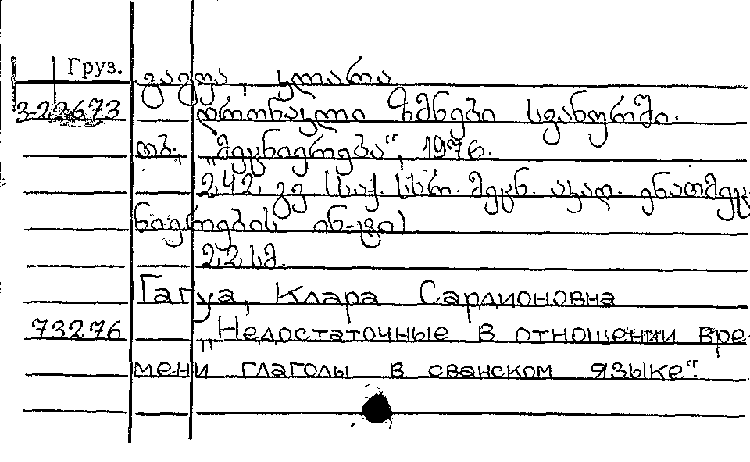 Груз.
გაგუა, კლარა
322673 დრონაკლი ზმნები სვანურში.
თბ., „მეცნიერება“, 1976.
242 გვ. (საქ. სსრ. მეცნ. აკად. ენათმეც
ნიერების ინ-ტი)
22 სმ.
Гагуа, Клара Сардионовна
73276 „Недостаточные в отношении вре
мени глаголы в сванском языке“.